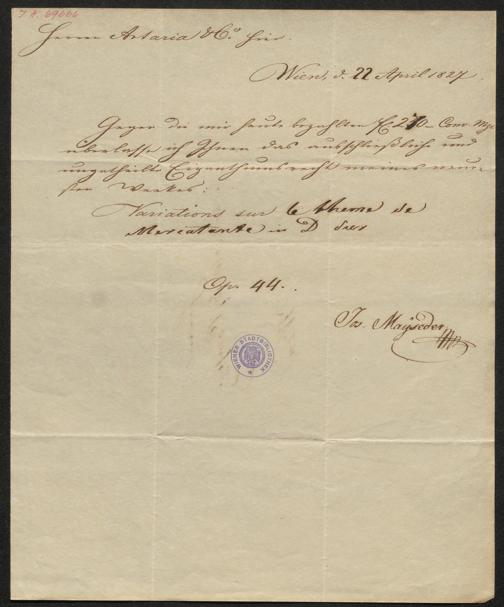 J.N. 69666
Herrn Artaria & Co. hier.
Wien, d. 22 April 1827.
Gegen die mir heute bezahlten f 270 – Conv. Mze
überlasse ich Ihnen das ausschließliche und
ungetheilte Eigenthumsrecht meines neue-
sten Werkes:
Variations sur le theme de
Mercatante in D dur
Op. 44.
Jos. Mayseder
WIENER STADTBIBLIOTHEK